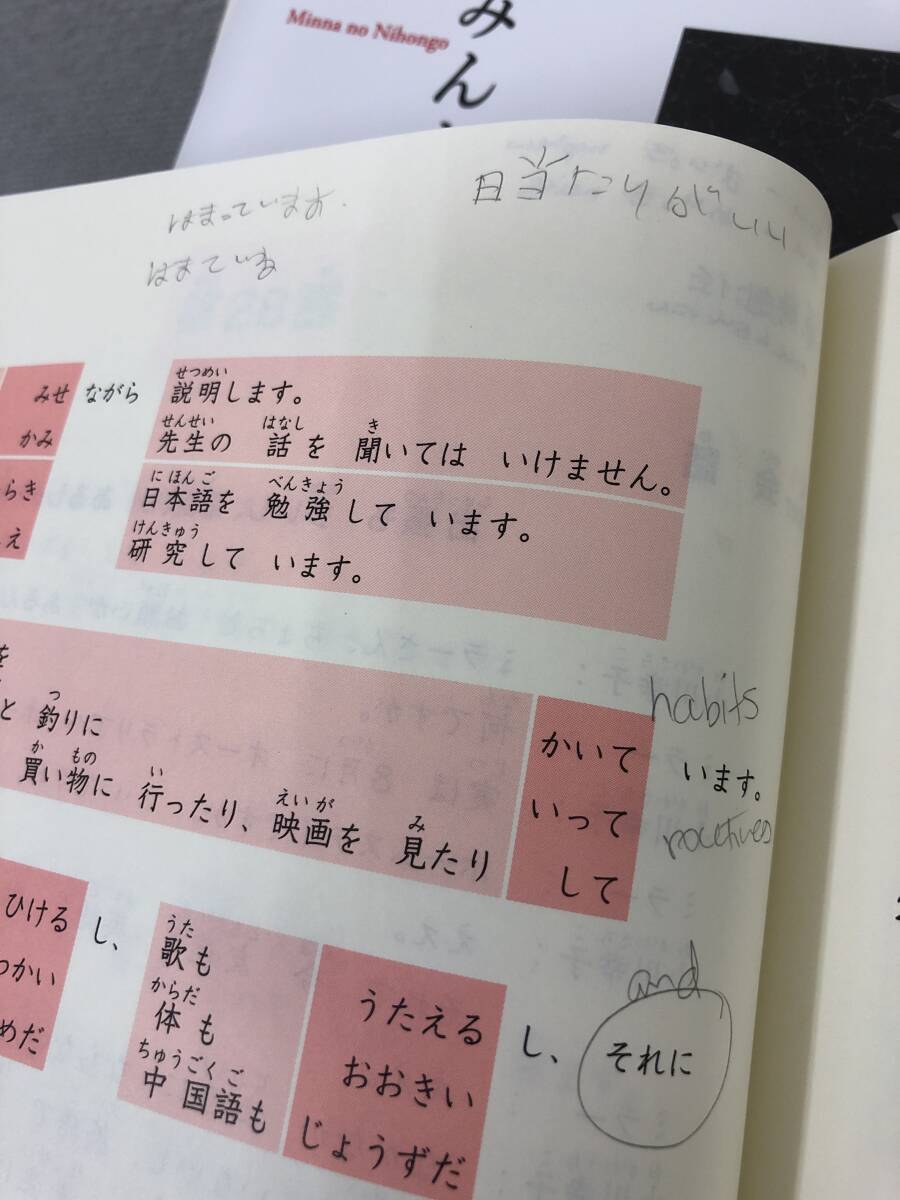 Minna no Nihongo
みん
日当たりがいい
はまっています.
はまている
みせ ながら 説明します。
かみ 先生の 話を 聞いては いけません。
らき 日本語を 勉強して います。
え 研究して います。
を
と 釣りに かいて
買い物に 行ったり、映画を 見たり いって います。
して
habits
routines
ひける し、 歌も うたえる し、 それに
つかい 体も おおきい
めだ 中国語も じょうずだ
and